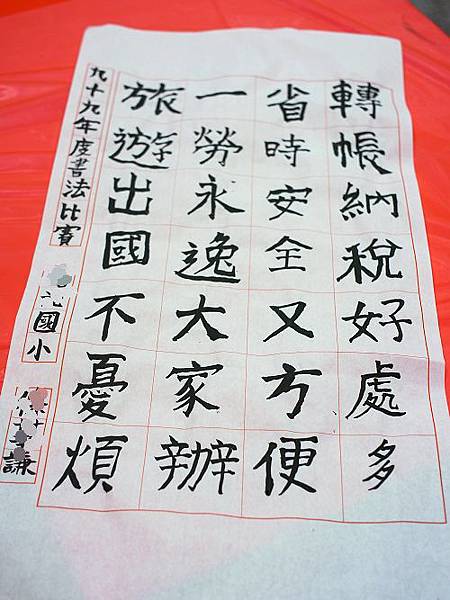 轉帳納稅好處多
省時安全又方便
一勞永逸大家辦
旅遊出國不憂煩
九十九年度書法比賽
國小
謙